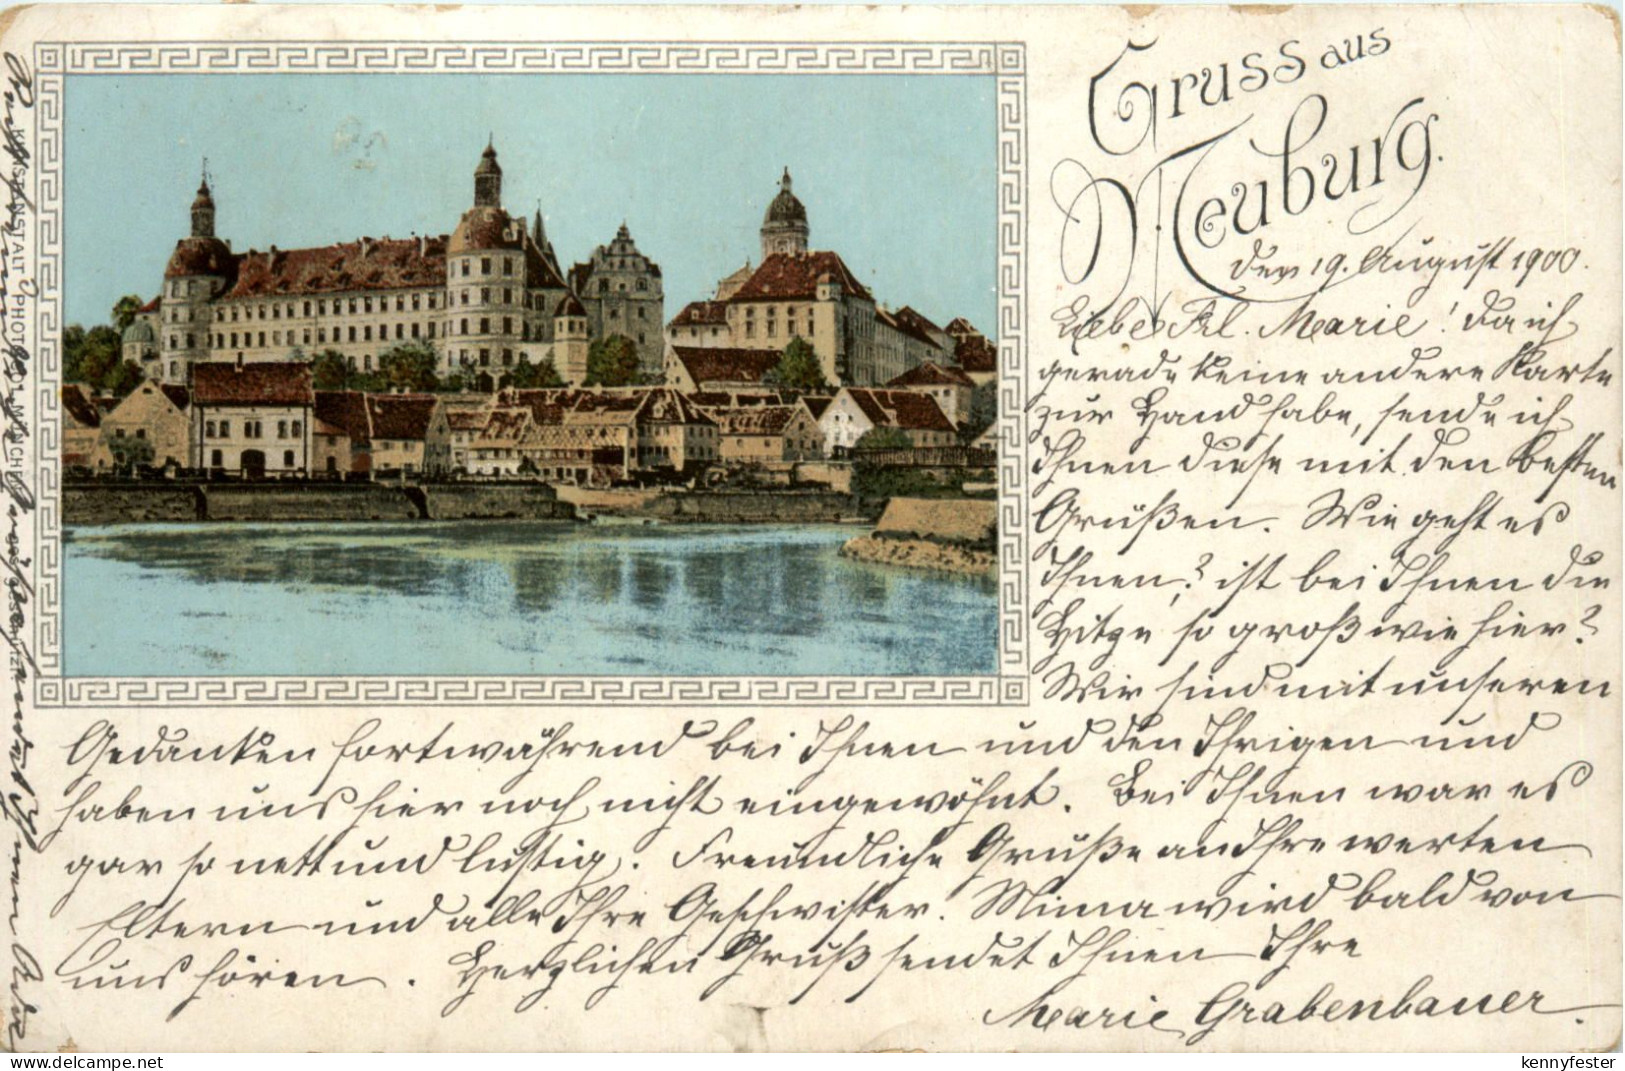 Gruss aus
Neuburg.
den 19. August 1900.
Liebes Frl. Marie! Da ich
gerade keine andere Karte
zur Hand habe, sende ich
Ihnen diese mit den besten
Grüßen. Wie geht es
Ihnen? ist bei Ihnen die
Hitze so groß wie hier?
Wir sind mit unseren
Gedanken fortwährend bei Ihnen und den Ihrigen und
haben uns hier noch nicht eingewöhnt. Bei Ihnen war es
gar so nett und lustig. Freundliche Grüße an Ihre werten
Eltern und alle Ihre Geschwister. Mima wird bald von
uns hören. Herzlichen Gruß sendet Ihnen Ihre
Marie Grabenbauer.
KUNSTANSTALT PHOTOCOL MÜNCHEN
delcampe.net
kennyfester